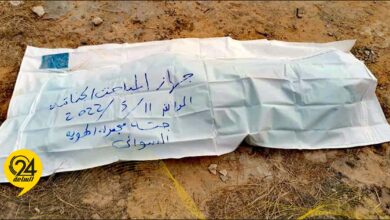 جهاز المباحث الجنائية
الموافق 11/5/2022
جثة مجهولة الهوية
السواني
24
الساعة